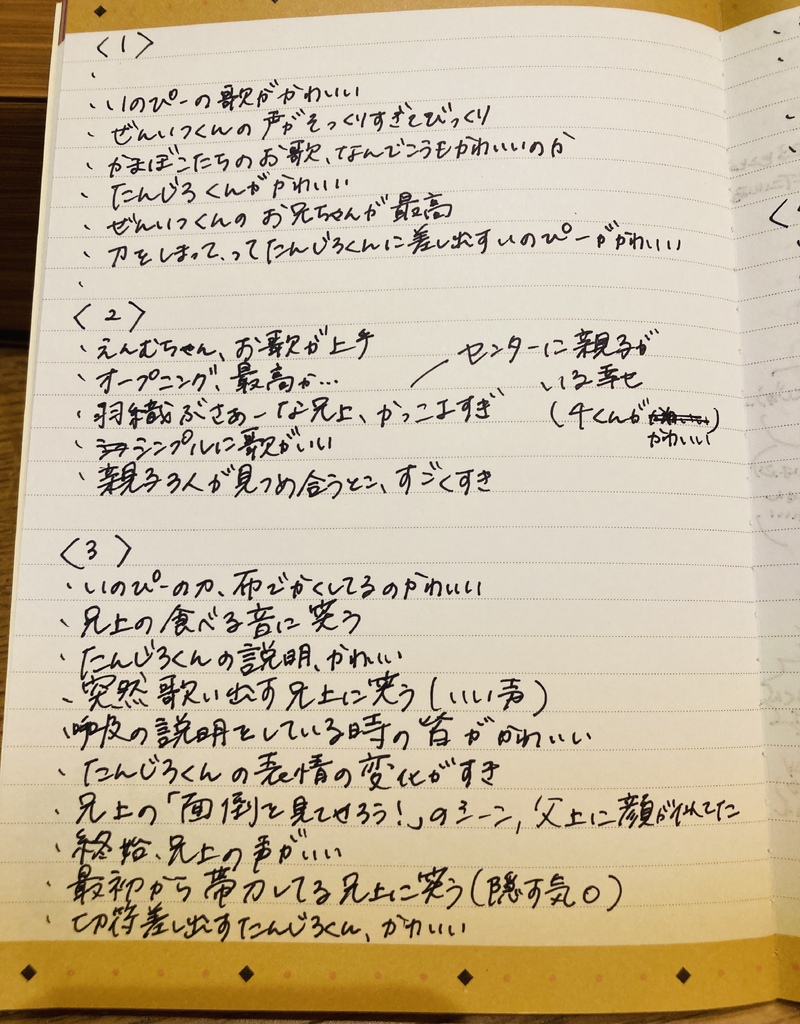 〈1〉
・
・いのぴーの歌がかわいい
・ぜんいつくんの声がそっくりすぎてびっくり
・かまぼこたちのお歌、なんでこうもかわいいのか
・たんじろくんがかわいい
・ぜんいつくんのお兄ちゃんが最高
・刀をしまって、ってたんじろくんに差し出すいのぴーがかわいい
・
〈2〉
・えんむちゃん、お歌が上手
・オープニング、最高か…
・羽織ぶさあーな兄上、かっこよすぎ
センターに親子が
いる幸せ
(千くんが
かわいい)
・シンプルに歌がいい
・親子3人が見つめ合うとこ、すごくすき
〈3〉
・いのぴーの刀、布でかくしてるのかわいい
・兄上の食べる音に笑う
・たんじろくんの説明、かわいい
・突然歌い出す兄上に笑う(いい声)
・呼吸の説明をしている時の皆がかわいい
・たんじろくんの表情の変化がすき
・兄上の「面倒を見てやろう!」のシーン,父上に顔が似てた
・終始、兄上の声がいい
・最初から帯刀してる兄上に笑う(隠す気0)
・切符差し出すたんじろくん、かわいい